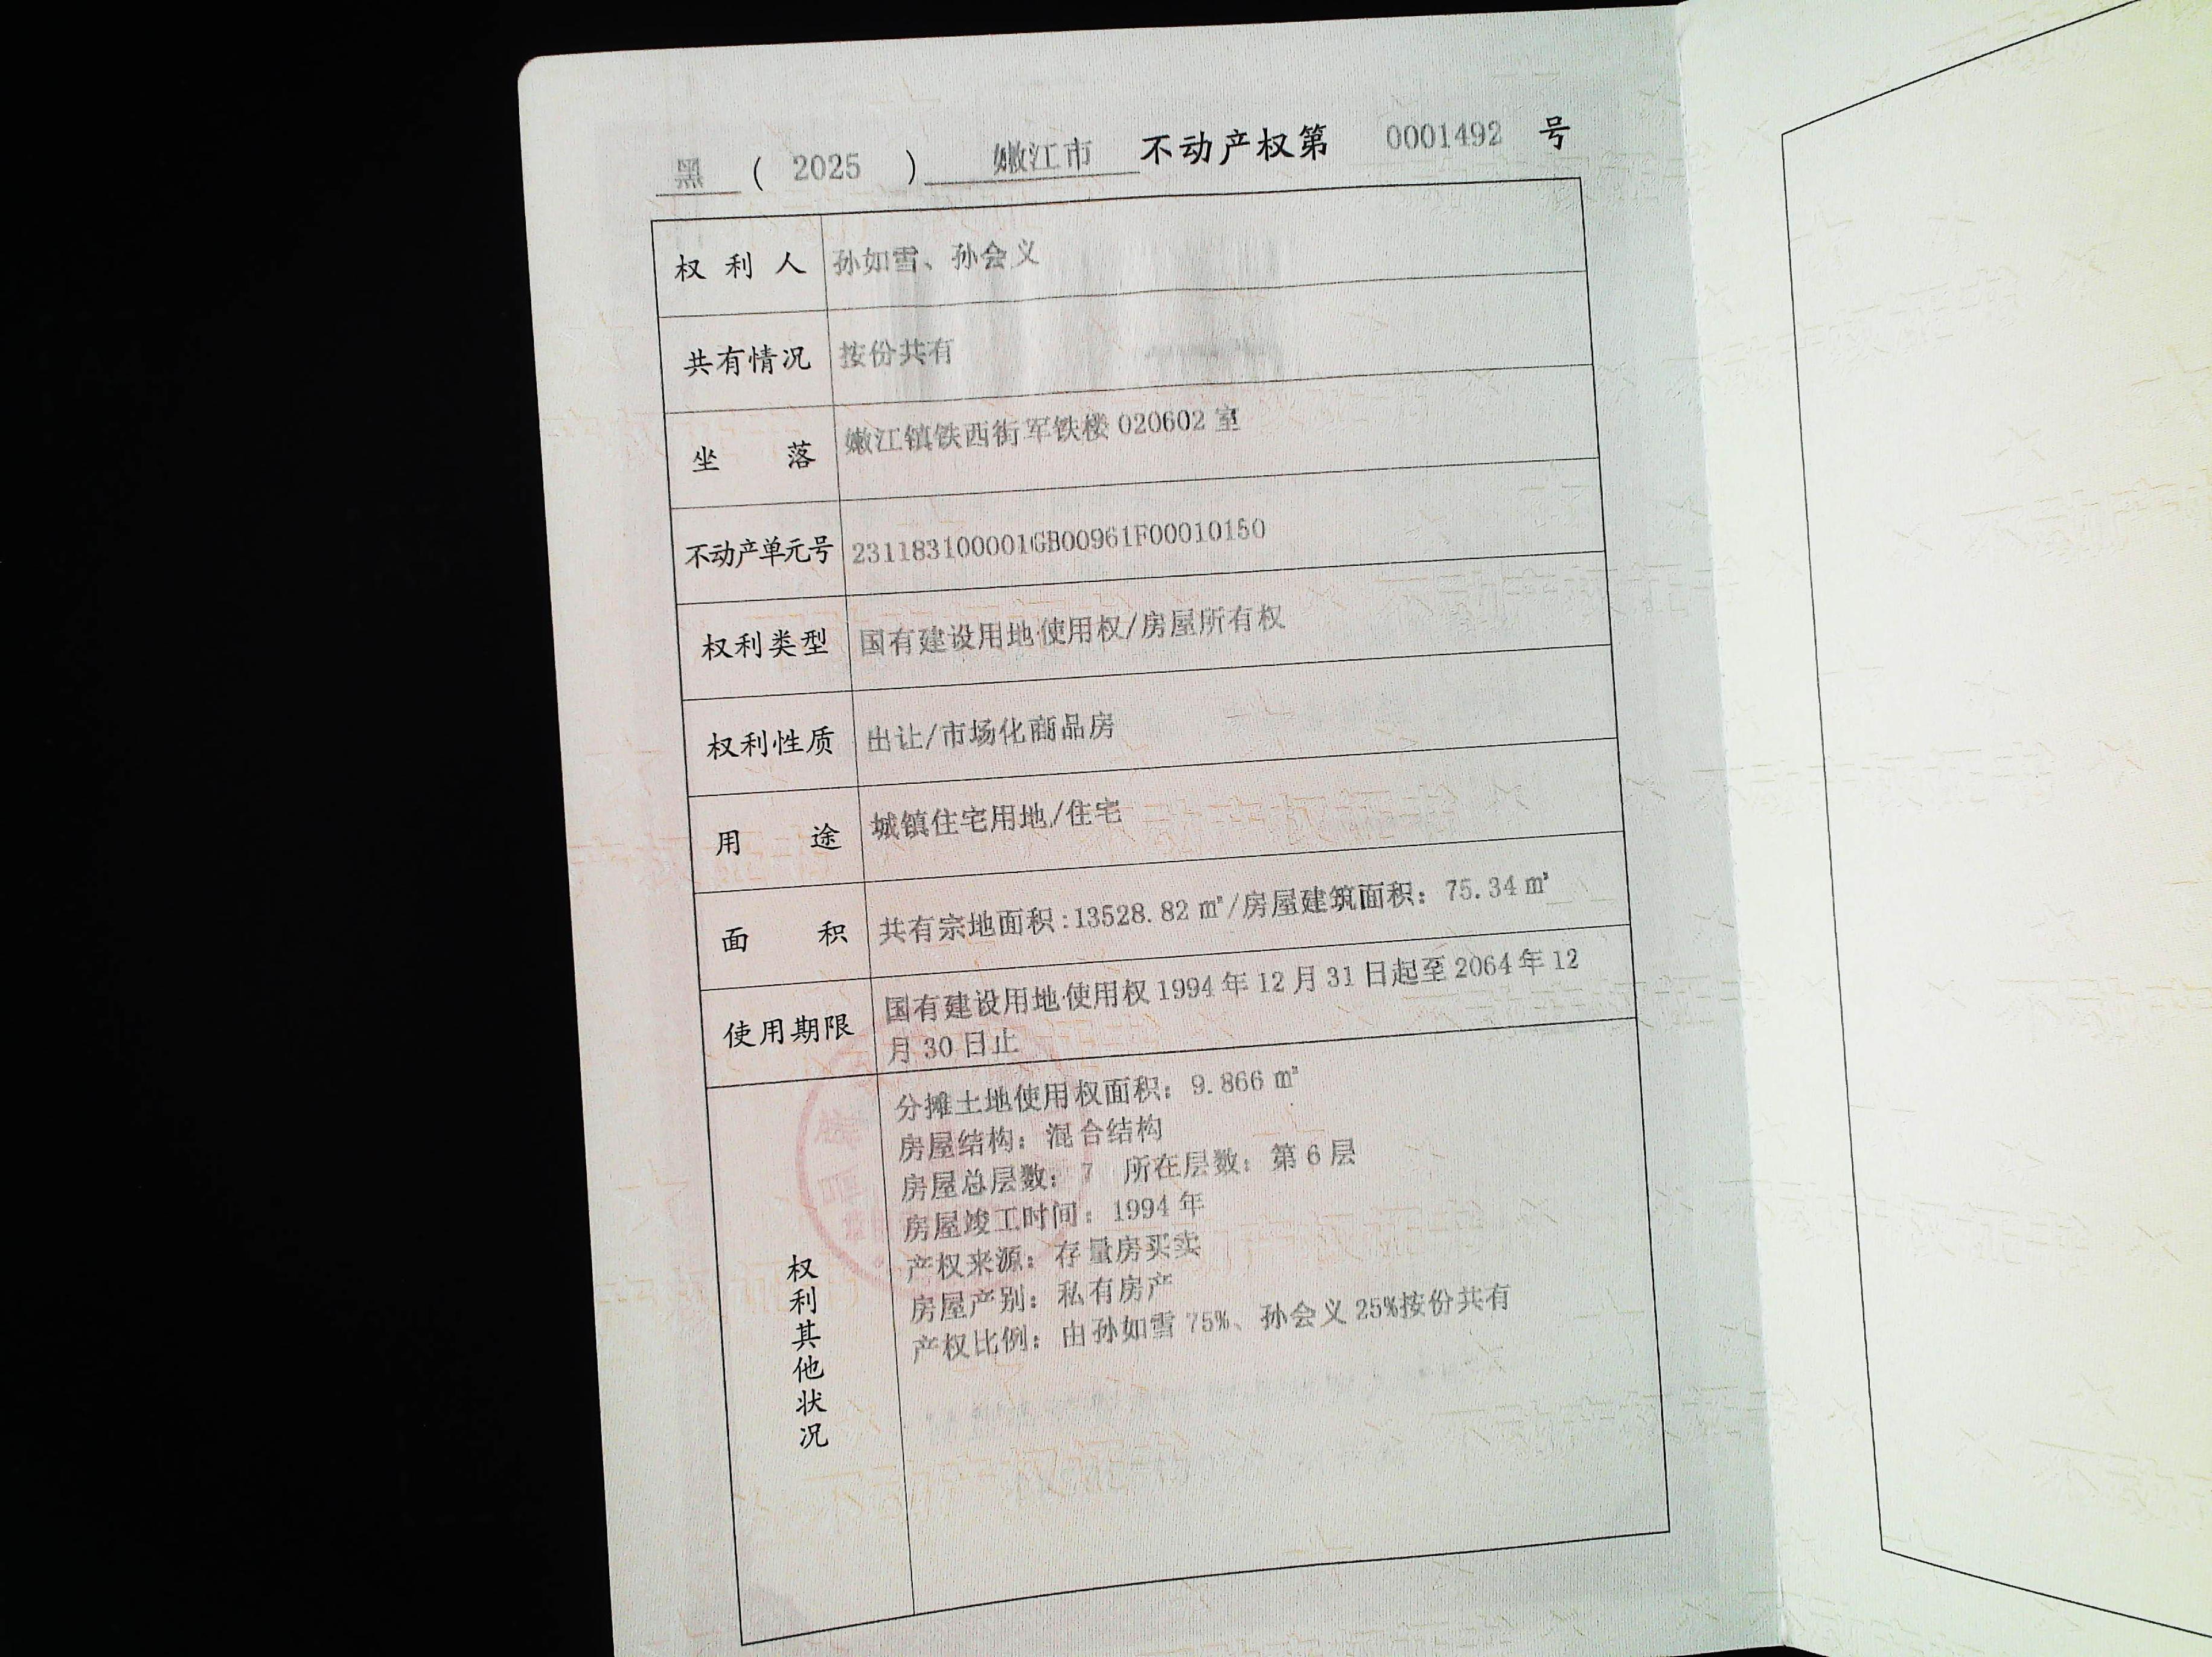 黑 ( 2025 ) 嫩江市 不动产权第 0001492 号
权利人 孙如雪、孙会义
共有情况 按份共有
坐落 嫩江镇铁西街军铁楼 020602 室
不动产单元号 231183100001GB00961F00010150
权利类型 国有建设用地使用权/房屋所有权
权利性质 出让/市场化商品房
用途 城镇住宅用地/住宅
面积 共有宗地面积:13528.82 ㎡/房屋建筑面积：75.34 ㎡
使用期限 国有建设用地使用权 1994 年 12 月 31 日起至 2064 年 12
月 30 日止
权利其他状况
分摊土地使用权面积：9.866 ㎡
房屋结构：混合结构
房屋总层数：7 所在层数：第 6 层
房屋竣工时间：1994 年
产权来源：存量房买卖
房屋产别：私有房产
产权比例：由孙如雪 75%、孙会义 25%按份共有